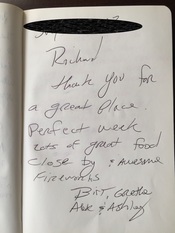 Richard
Thank you for
a great place.
Perfect week
lots of great food
close by & awesome
Fireworks
Brit, Greta
Abe & Ashley